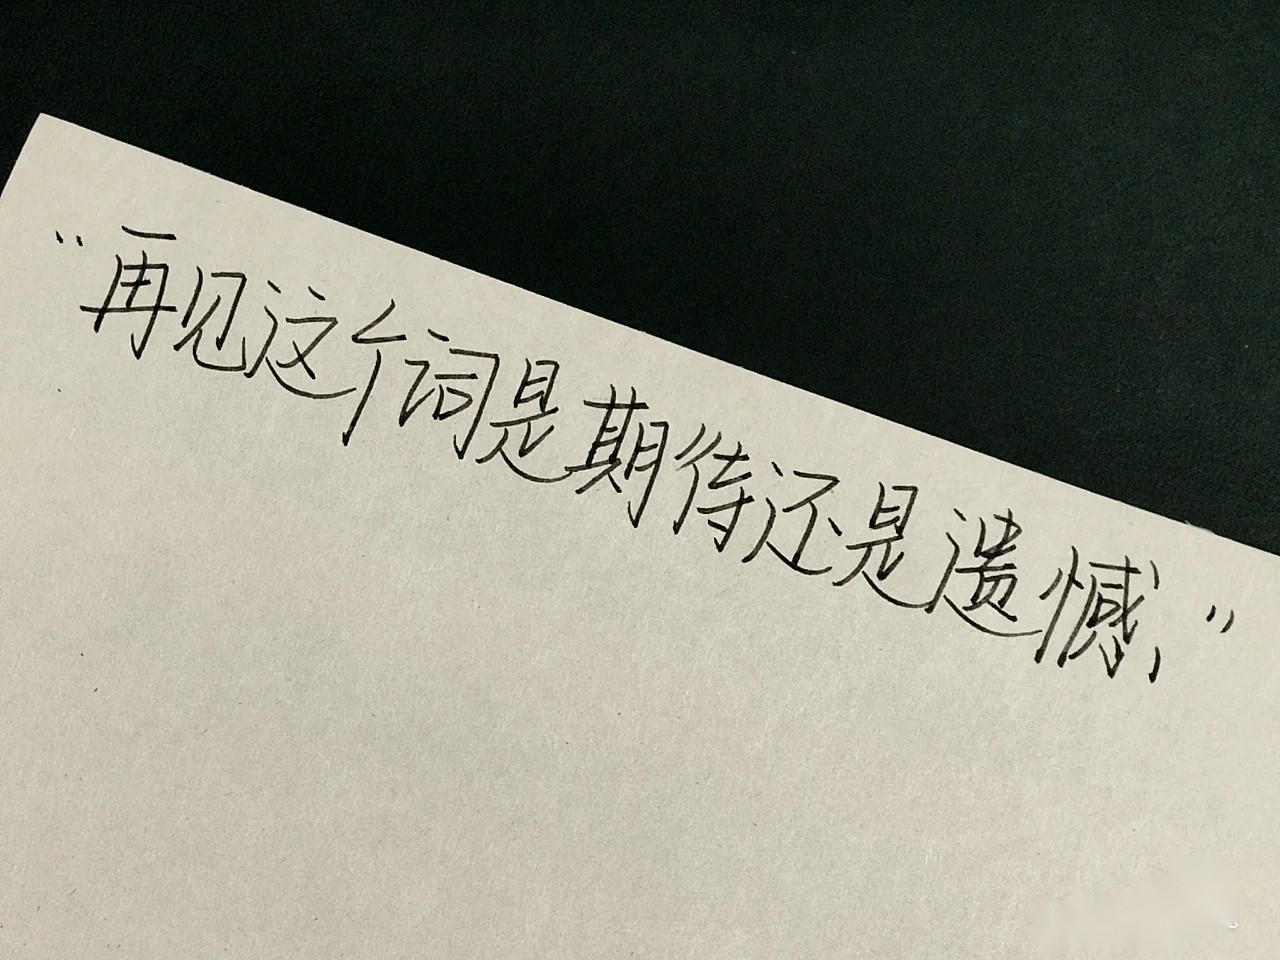 “再见这个词是期待还是遗憾”